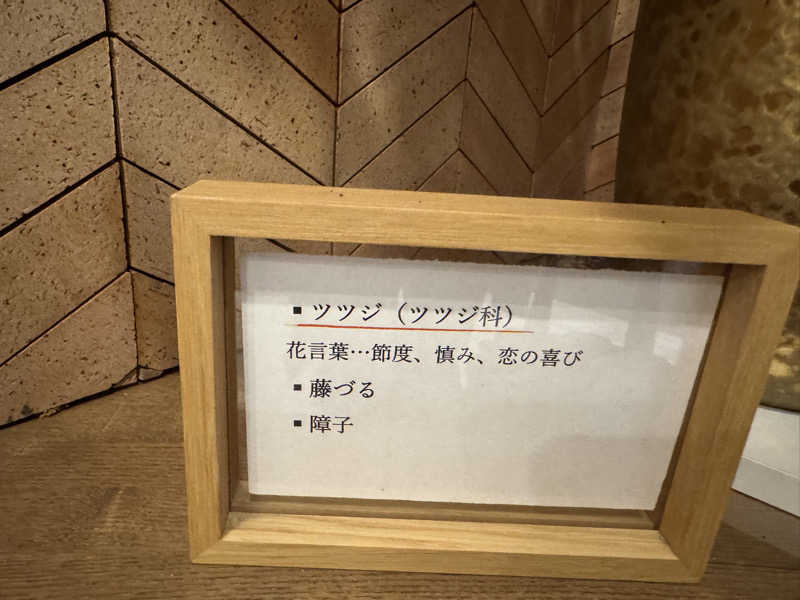 ▪ ツツジ（ツツジ科）
花言葉…節度、慎み、恋の喜び
▪ 藤づる
▪ 障子